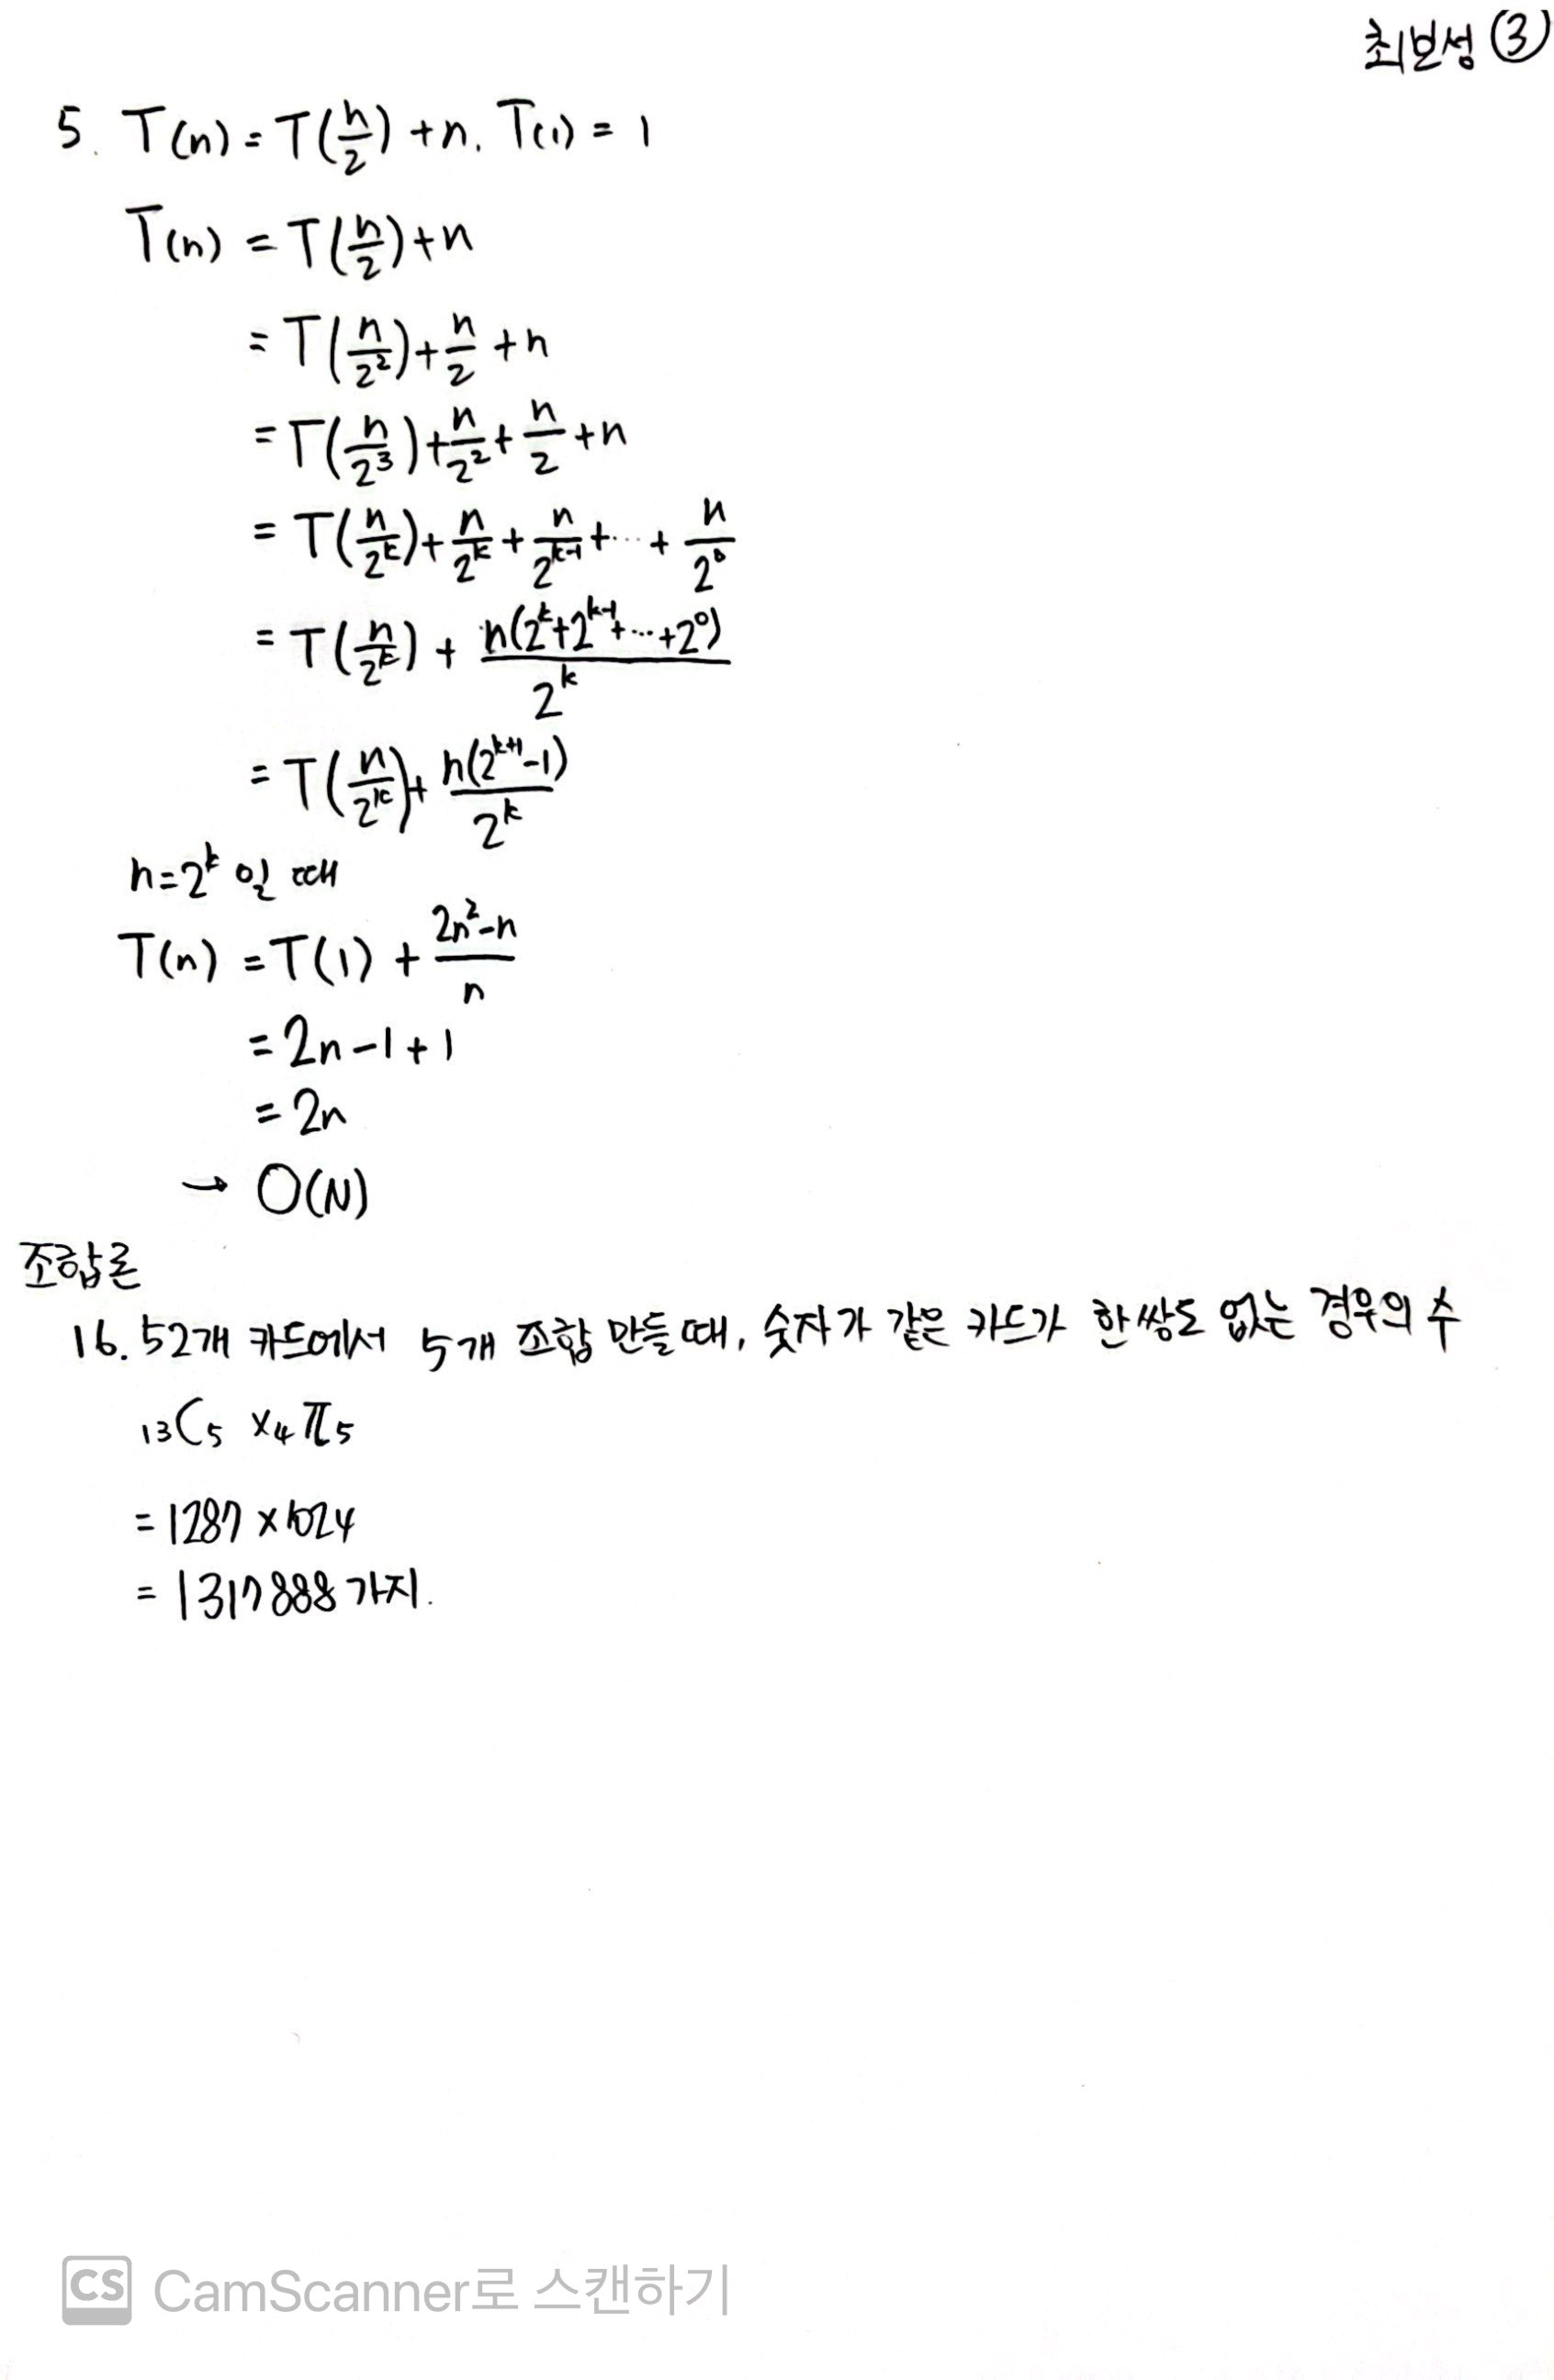 최보성 ③
5. T(n) = T(n/2) + n. T(1) = 1
T(n) = T(n/2) + n
= T(n/2²) + n/2 + n
= T(n/2³) + n/2² + n/2 + n
= T(n/2^k) + n/2^k + n/2^(k-1) + ... + n/2^0
= T(n/2^k) + n(2^k + 2^(k-1) + ... + 2^0)/2^k
= T(n/2^k) + n(2^(k+1) - 1)/2^k
n = 2^k 일 때
T(n) = T(1) + (2n² - n)/n
= 2n - 1 + 1
= 2n
→ O(N)
조합론
16. 52개 카드에서 5개 조합 만들 때, 숫자가 같은 카드가 한쌍도 없는 경우의 수
₁₃C₅ × ₄π₅
= 1287 × 1024
= 1317888 가지.
CS CamScanner로 스캔하기